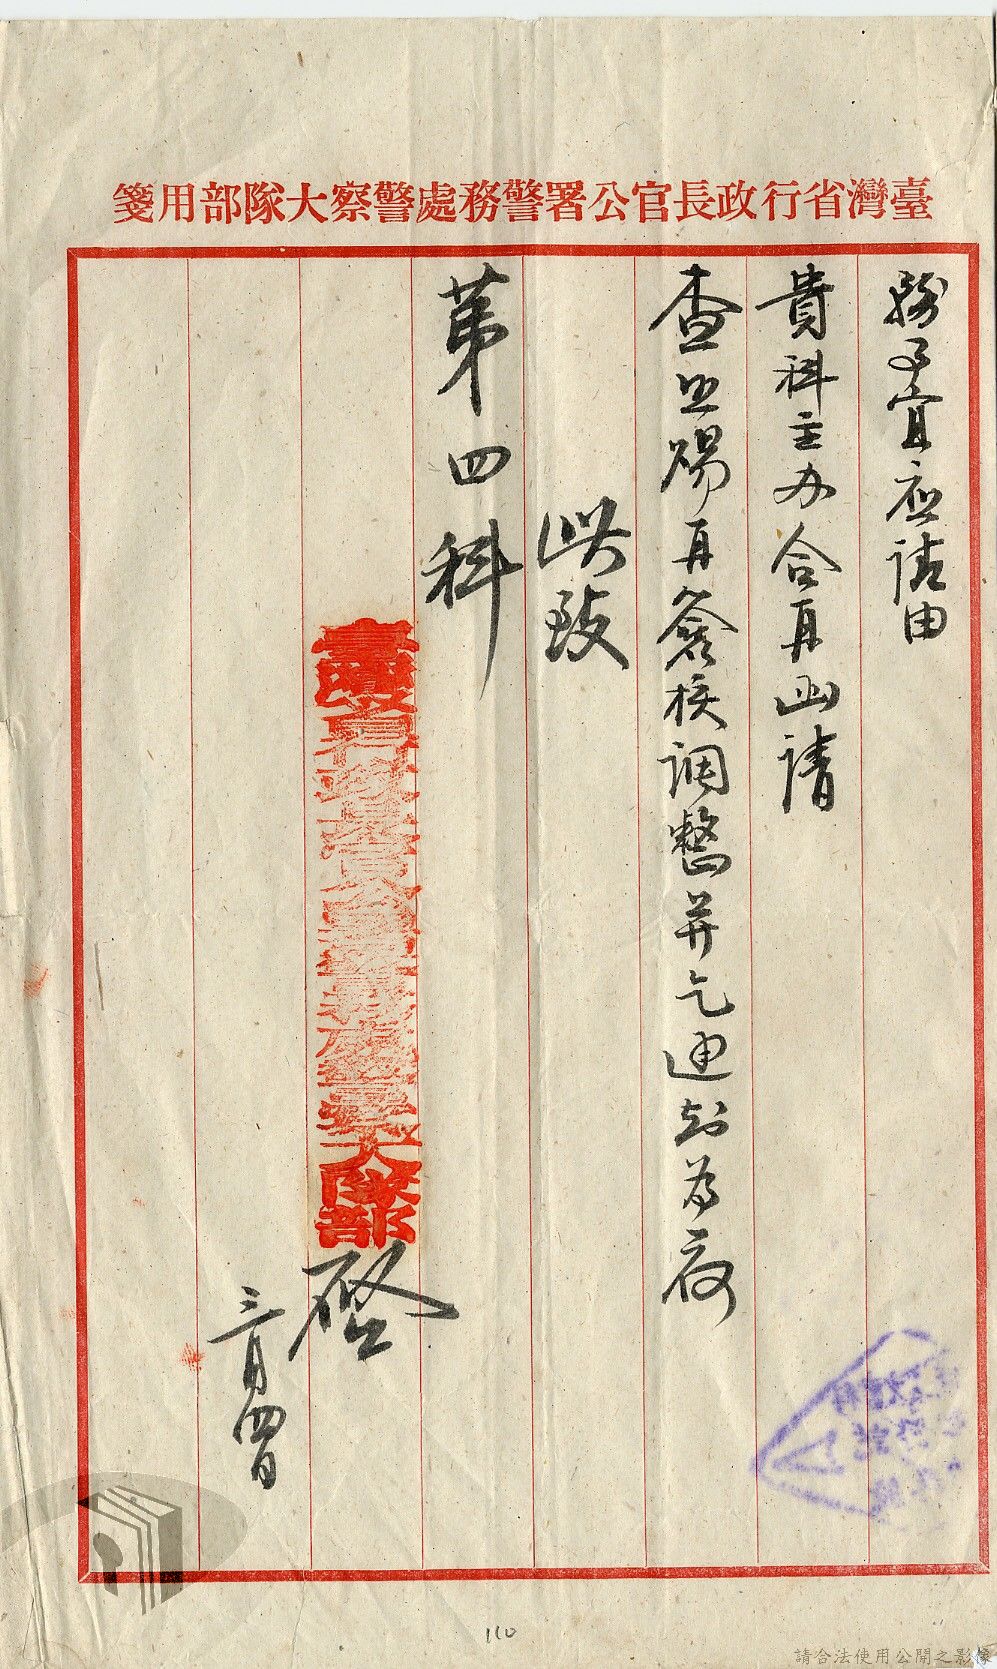 臺灣省行政長官公署警務處警察大隊部用箋
事宜应請由
貴科主办合再函請
查照賜再簽核調整并乞迅知为荷
此致
第四科
臺灣省行政長官公署警務處警察大隊部 啓
三月四日
110
請合法使用公開之影像